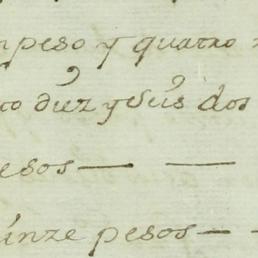 peso y quatro
diez y seis dos
pesos — —
quinze pesos — —